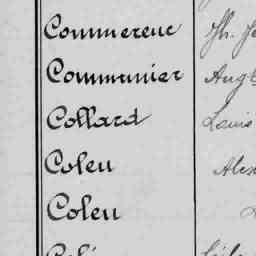 Commerenc
Communier
Collard Louis
Coleu Alex
Coleu